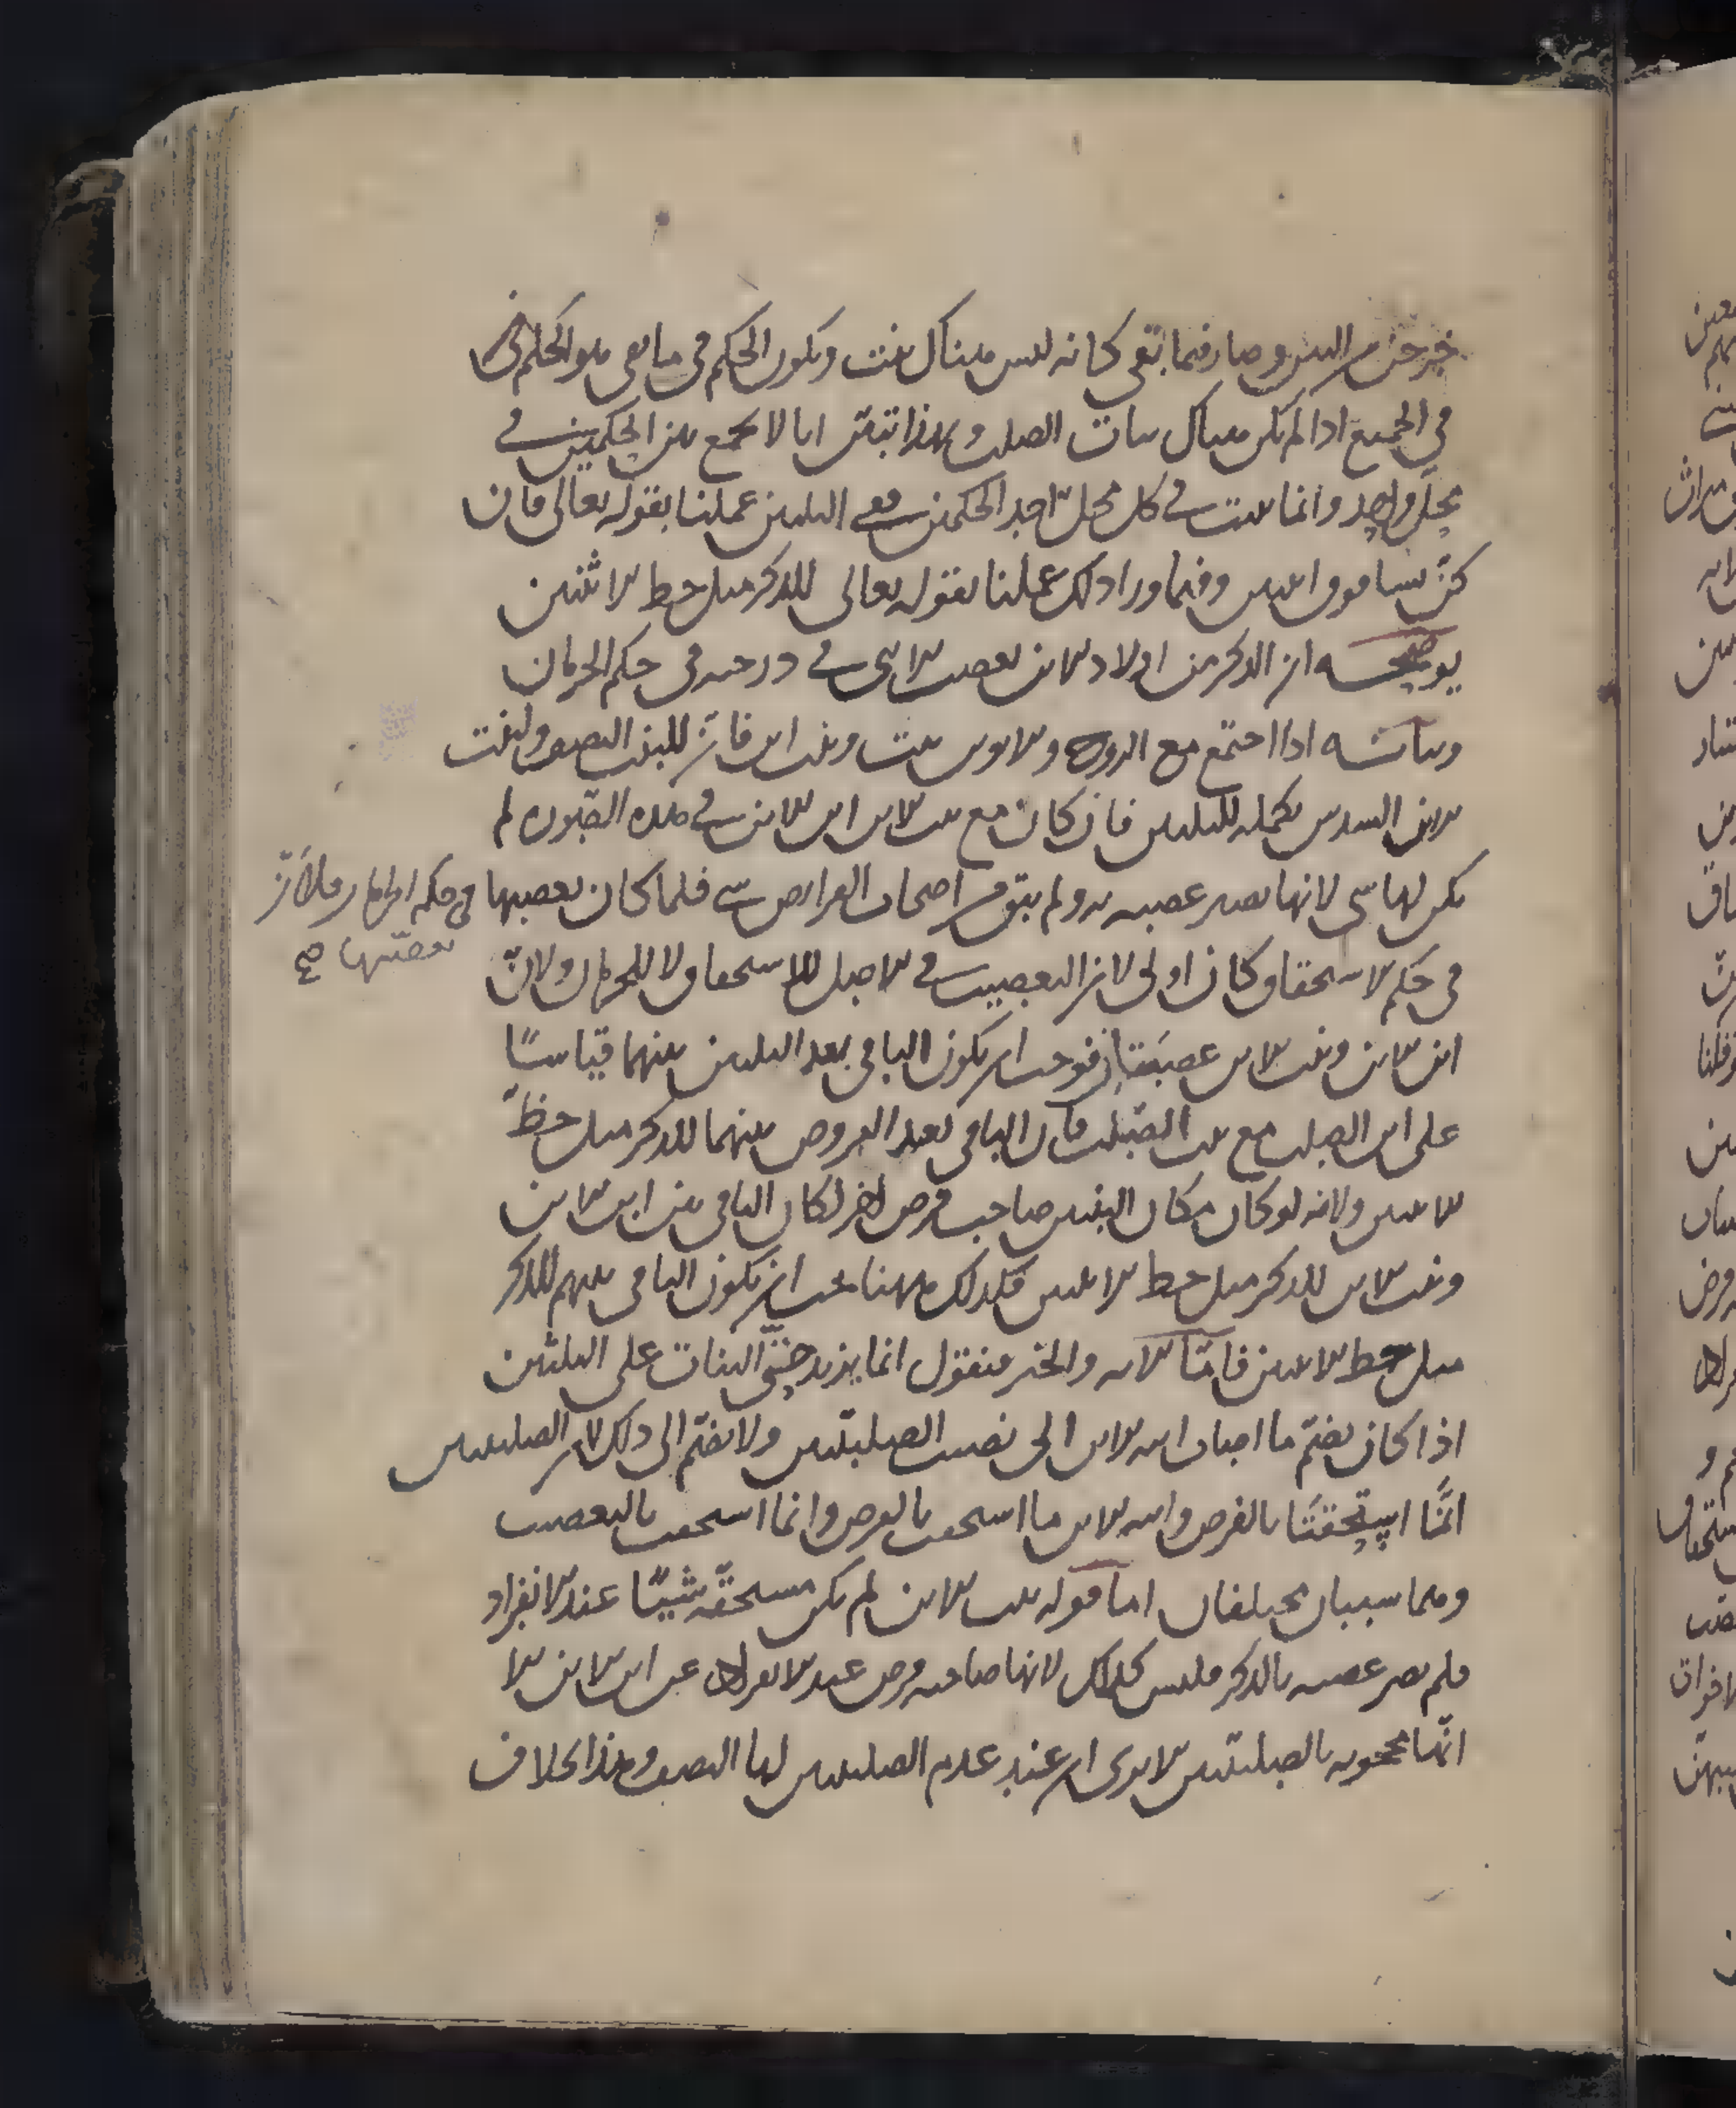 خرجن من البين وصار فيما بقي كانه ليس هناك بنت ويكون الحكم في ما بقي هو الحكم في
في الجميع اذا لم يكن هناك بنات الصلب وبهذا تبين انا لا نجمع بين الحكمين في
محل واحد وانما يثبت في كل محل احد الحكمين ففي الثلثين عملنا بقوله تعالى فان
كن نسا فوق اثنتين وفيما وراذلك عملنا بقوله تعالى للذكر مثل حظ الانثيين
يوضحه ان الذكر من اولاد الابن يعصب الانثى في درجته في حكم الحرمان
وبيانه اذا اجتمع مع الزوج والابوين بنت وبنت ابن فان للبنت النصف ولبنت
الابن السدس تكملة للثلثين فان كان مع بنت الابن ابن الابن في هذه الصورة لم
يكن لها شي لانها تصير عصبه به ولم يبق من اصحاب الفرايض شي فلما كان يعصبها في حكم الحرمان فلان
يعصبها صح
في حكم الاستحقاق كان اولى لان التعصيب في الاصل للاستحقاق لا للحرمان ولان
ابن الابن وبنت الابن عصبتان فوجب ان يكون الباقي بعد الثلثين بينهما قياسًا
على ابن الصلب مع بنت الصلب فان الباقي بعد الفروض بينهما للذكر مثل حظ
الانثيين ولانه لو كان مكان البنتين صاحب فرض اخر لكان الباقي بين ابن الابن
وبنت الابن للذكر مثل حظ الانثيين فكذلك ههنا يجب ان يكون الباقي بينهم للذكر
مثل حظ الانثيين فامّا الايه والخبر فنقول انما يزيد حق البنات على الثلثين
اذا كان يضمّ ما اصاب ابنه الابن الى نصيب الصلبيتين ولا يضمّ الى ذلك لان الصلبيتين
انّما استحقتا بالفرض وابنه الابن ما استحقت بالفرض وانما استحقت بالتعصيب
وهما سببان مختلفان اما قوله بنت الابن لم تكن مستحقّه شيئًا عند الانفراد
فلم تصر عصبه بالذكر فليس كذلك لانها صاحبه فرض عند الانفراد عن ابن الابن الا
انّها محجوبه بالصلبيّتين الا يرى ان عند عدم الصلبيتين لها النصف وهذا بخلاف